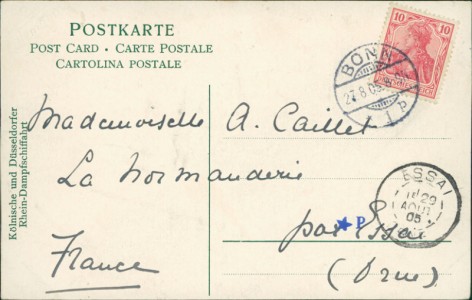 POSTKARTE
POST CARD · CARTE POSTALE
CARTOLINA POSTALE
10 10
BONN
27.8.05
1 P
Mademoiselle A. Caillet
La Normanderie
par Essai
(Orne)
France
ESSAI
29
AOUT
05
P
Kölnische und Düsseldorfer
Rhein-Dampfschiffahrt